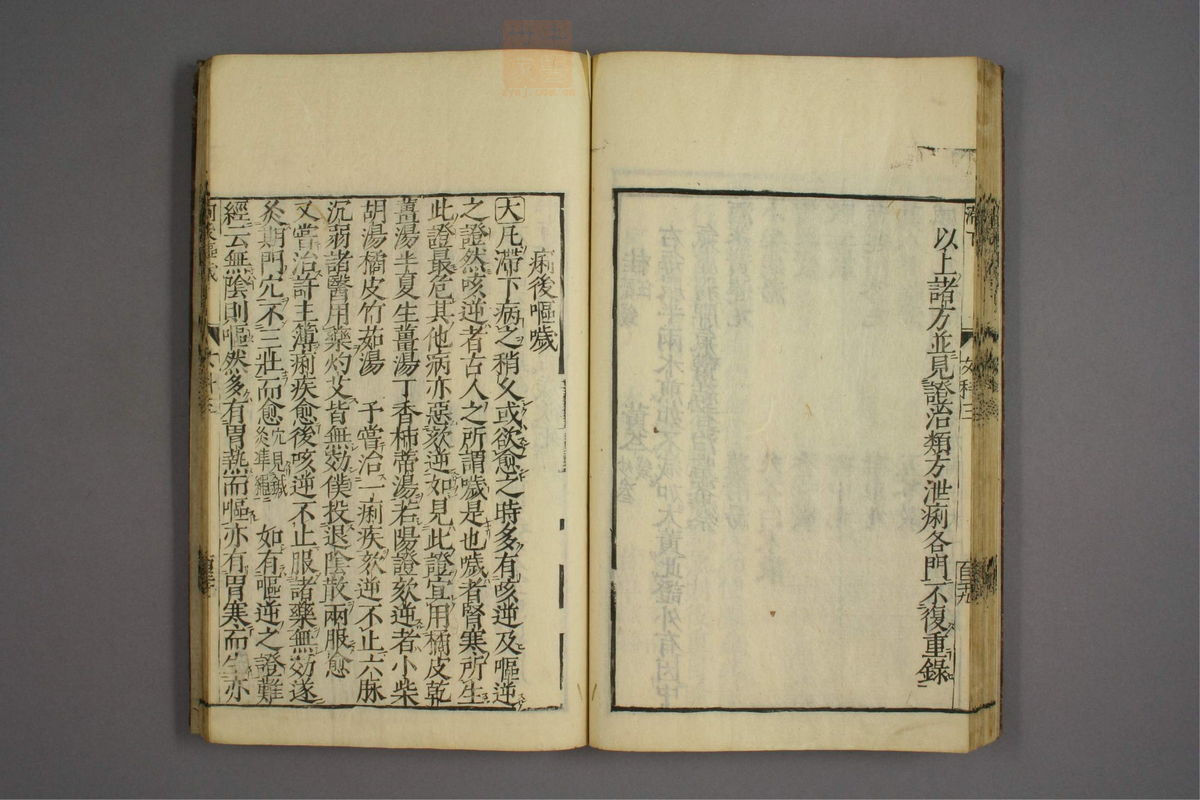 以上諸方並見證治類方泄痢各門不復重錄
女科三
痢後嘔噦
大凡滯下病之稍久或欲愈之時多有咳逆及嘔逆
之證然咳逆者古人之所謂噦是也噦者腎寒所生
此證最危其他病亦惡欬逆如見此證宜用橘皮乾
薑湯半夏生薑湯丁香柿蒂湯若陽證欬逆者小柴
胡湯橘皮竹茹湯 予嘗治一痢疾欬逆不止六脉
沉弱諸醫用藥灼艾皆無効僕投退陰散兩服愈
又嘗治許主簿痢疾愈後咳逆不止服諸藥無効遂
灸期門穴不三壯而愈 穴見鍼灸準繩 如有嘔逆之證難
經云無陰則嘔然多有胃熱而嘔亦有胃寒而生亦